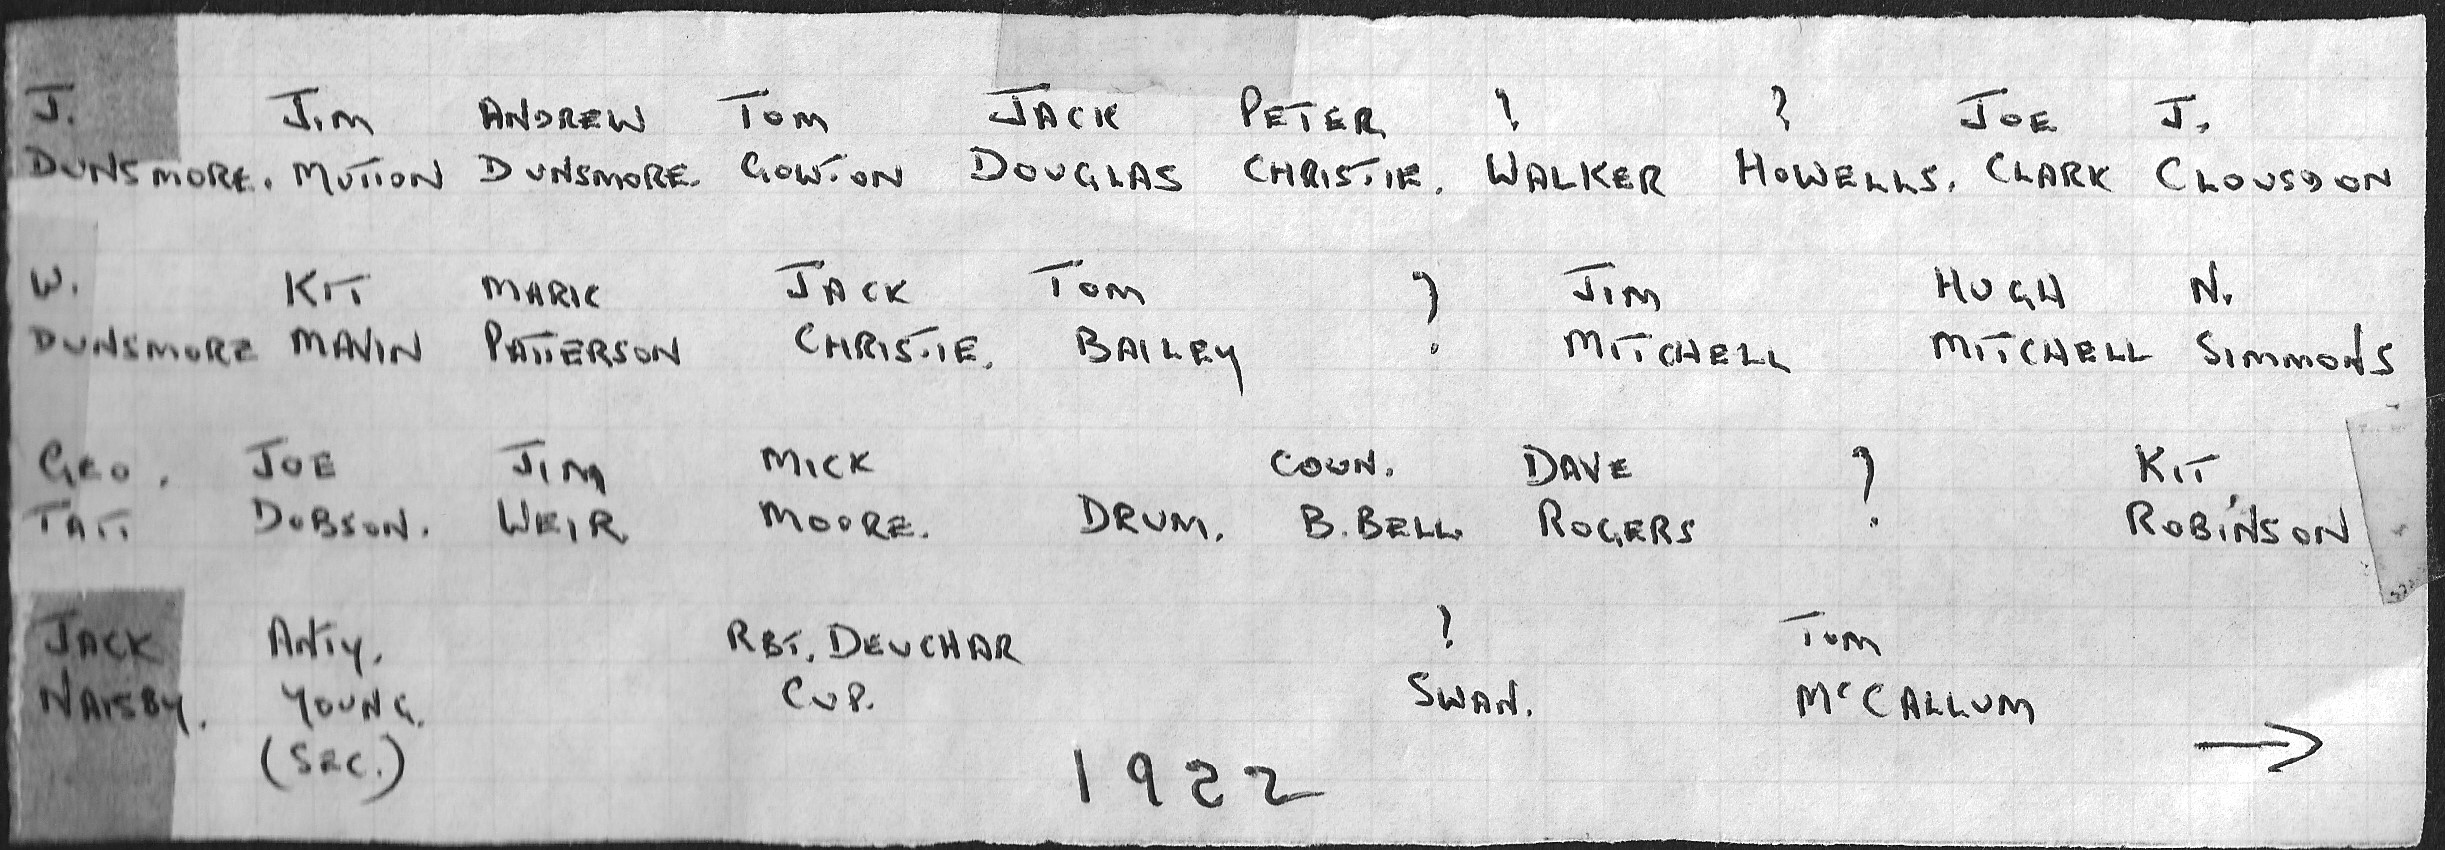 J. JIM ANDREW TOM JACK PETER ? ? JOE J.
DUNSMORE. MUTION DUNSMORE. GOWTON DOUGLAS CHRISTIE. WALKER HOWELLS. CLARK CLOUSDON
W. KIT MARK JACK TOM ? JIM HUGH N.
DUNSMORE MAVIN PATTERSON CHRISTIE. BAILEY MITCHELL MITCHELL SIMMONS
GEO. JOE JIM MICK COUN. DAVE ? KIT
TAIT DOBSON. WEIR MOORE. DRUM. B. BELL. ROGERS ROBINSON
JACK ANTY. RBT. DEUCHAR ? TOM
NAISBY. YOUNG. CUP. SWAN. McCALLUM
(SEC.) 1922 →